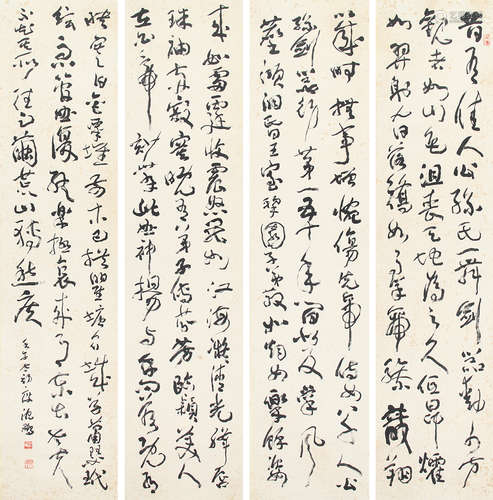 昔有佳人公孫氏一舞劍器動四方
觀者如山色沮喪天地為之久低昂㸌
如羿射九日落矯如群帝驂龍翔
以感時撫事增惋傷先帝侍女八千人公
孫劍器初第一五十年間似反掌風
塵澒洞昏王室梨園子弟散如煙女樂餘姿
來如雷霆收震怒罷如江海凝清光絳唇
珠袖兩寂寞晚有弟子傳芬芳臨潁美人
在白帝妙舞此曲神揚揚與余問答既有
映寒日金粟堆前木已拱瞿塘石城草蕭瑟玳
絃急管曲復終樂極哀來月東出老夫
不知其所往足繭荒山轉愁疾
壬午 沈鵬